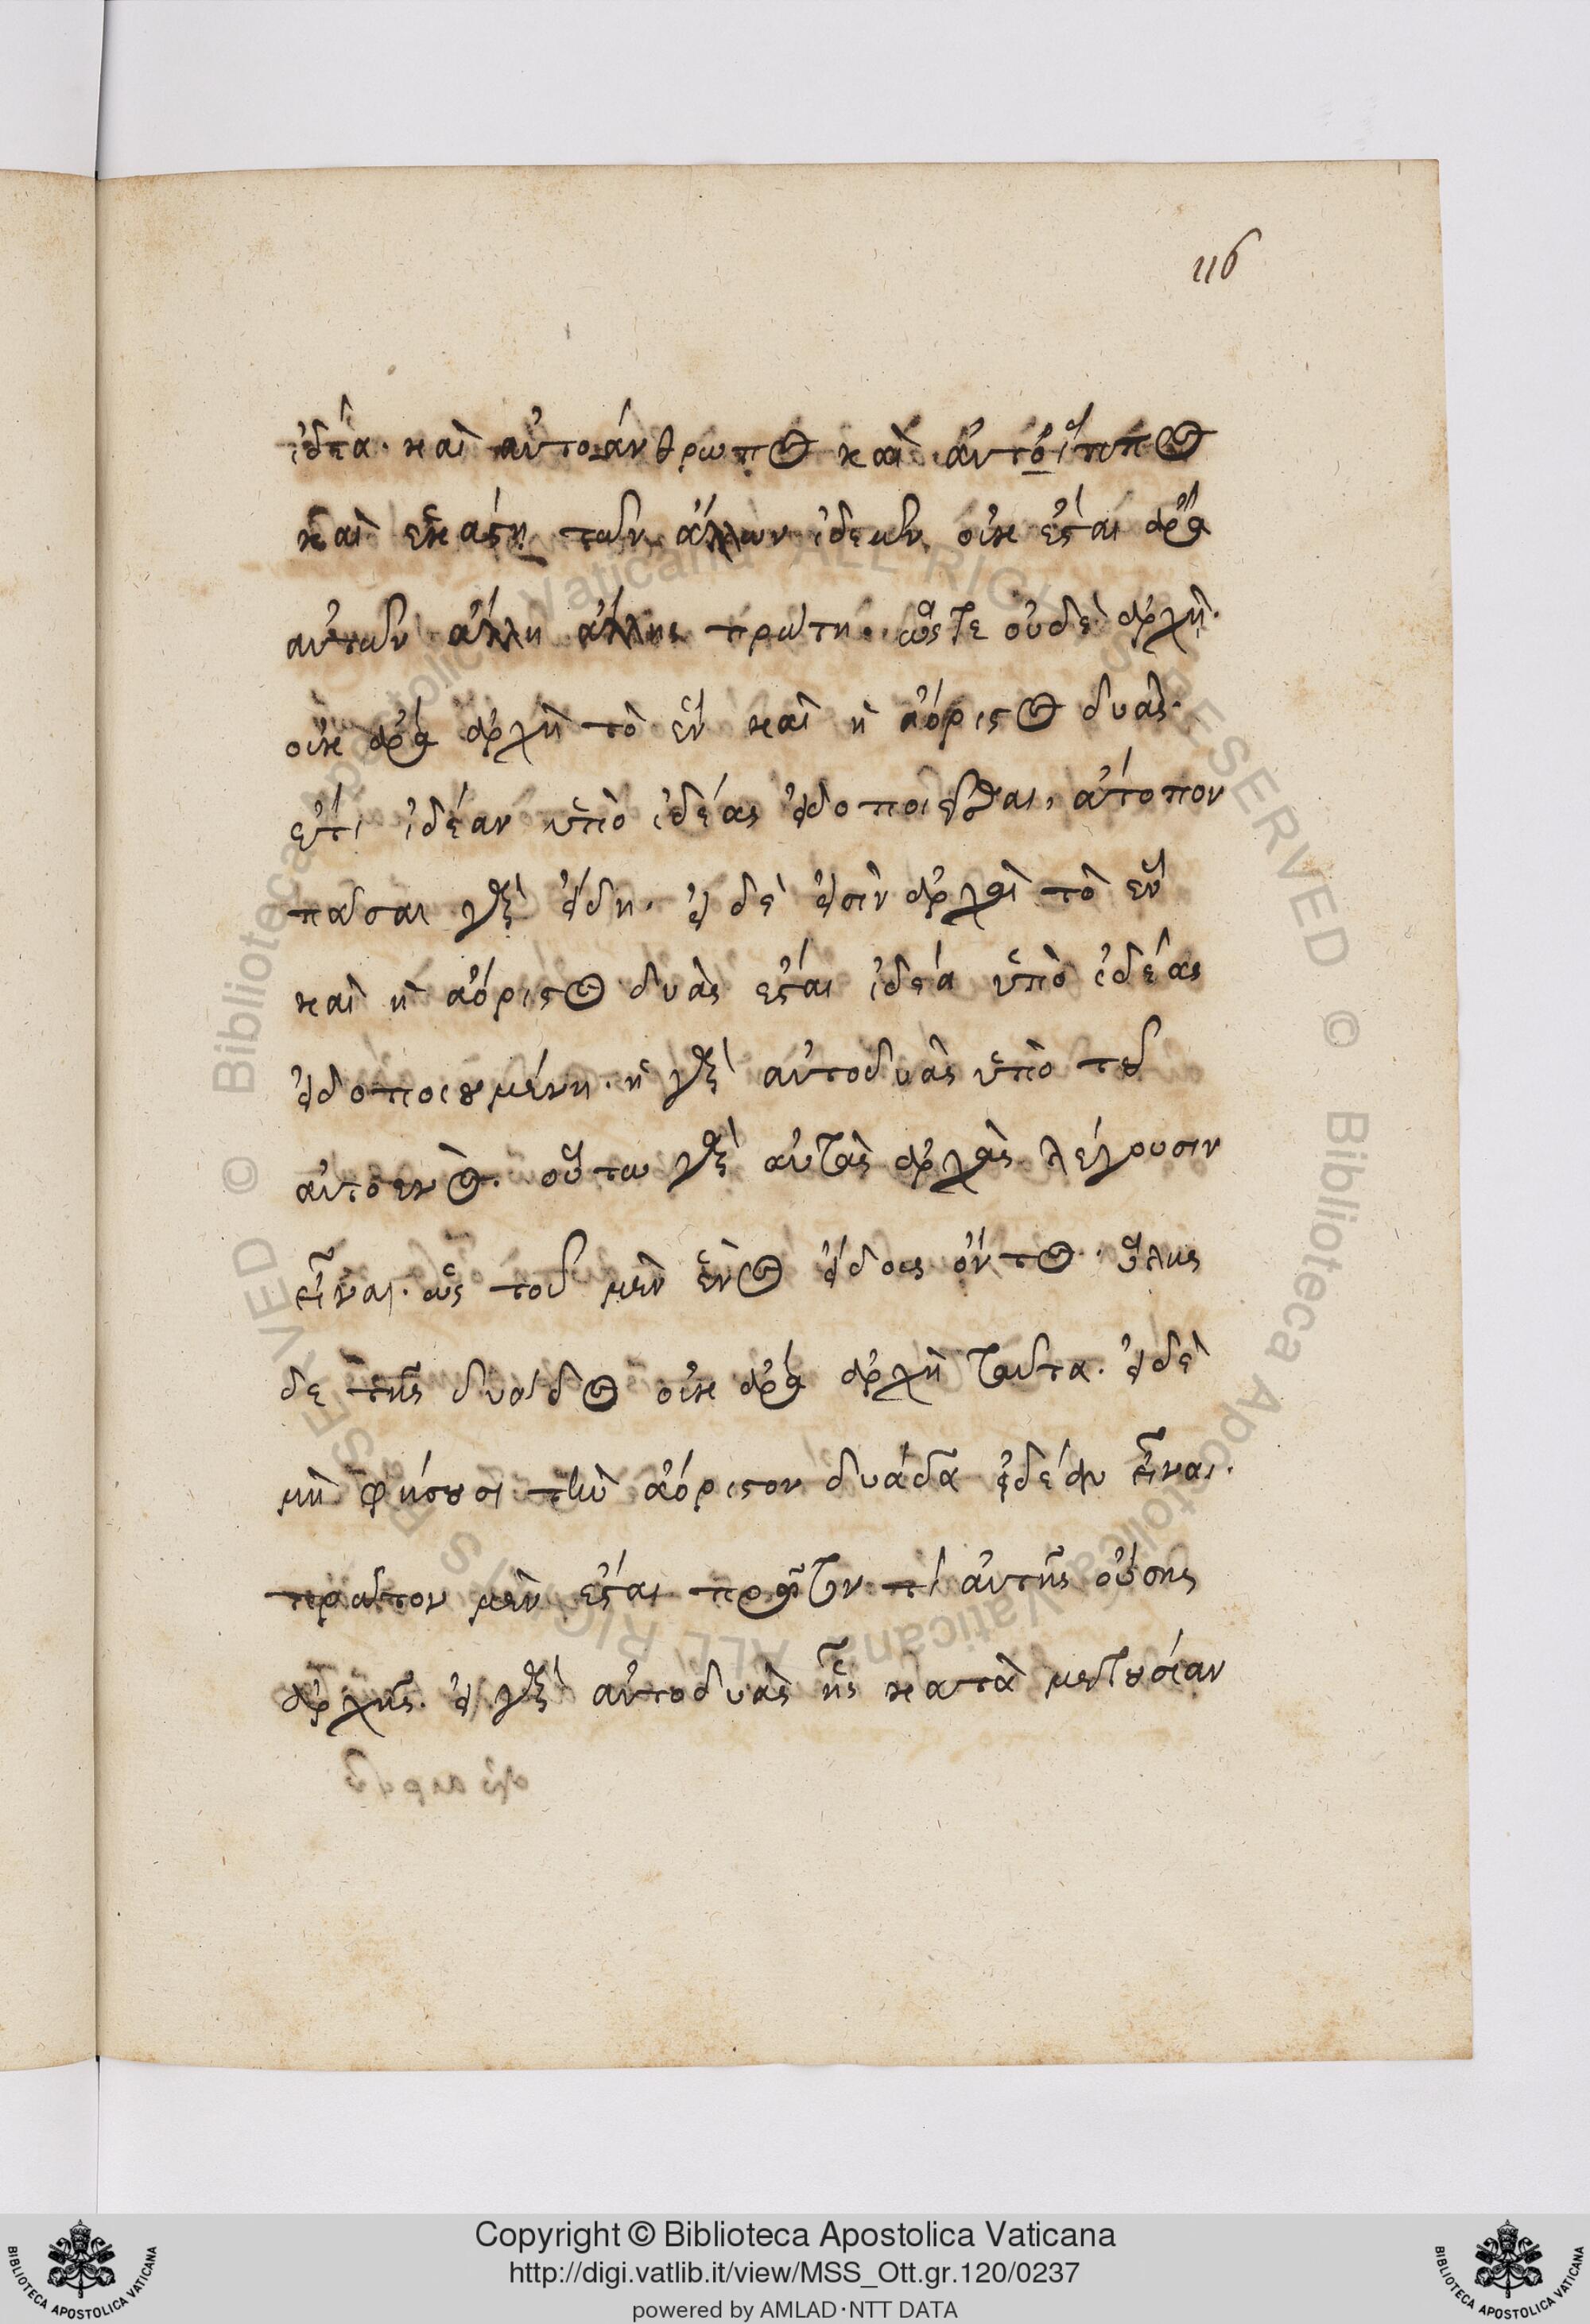 116
ἰδέα· καὶ αὐτοάνθρωπος καὶ αὐτόϊππος
καὶ ἑκάστη τῶν ἄλλων ἰδεῶν. οὐκ ἔσται ἄρα
αὐτῶν ἄλλη ἄλλης πρώτη. ὥστε οὐδὲ ἀρχή.
οὐκ ἄρα ἀρχὴ τὸ ἓν καὶ ἡ ἀόριστος δυάς.
ἔτι ἰδέαν ὑπὸ ἰδέας εἰδοποιεῖσθαι, ἄτοπον
πᾶσαι γὰρ εἴδη. εἰ δὲ εἰσὶν ἀρχαὶ τὸ ἓν
καὶ ἡ ἀόριστος δυὰς ἔσται ἰδέα ὑπὸ ἰδέας
εἰδοποιουμένη. ἡ γὰρ αὐτοδυὰς ὑπὸ τοῦ
αὐτοενός. οὕτω γὰρ αὐτὰς ἀρχὰς λέγουσιν
εἶναι. ὡς τοῦ μὲν ἑνὸς εἴδους ὄντος. ὕλης
δὲ τῆς δυάδος οὐκ ἄρα ἀρχὴ ταῦτα. εἰ δὲ
μὴ φήσουσι τὴν ἀόριστον δυάδα ἰδέαν εἶναι.
πρῶτον μὲν ἔσται πρῶτόν τι αὐτῆς οὔσης
ἀρχῆς. εἰ γὰρ αὐτοδυὰς ἧς κατὰ μετουσίαν
Copyright © Biblioteca Apostolica Vaticana
http://digi.vatlib.it/view/MSS_Ott.gr.120/0237
powered by AMLAD·NTT DATA